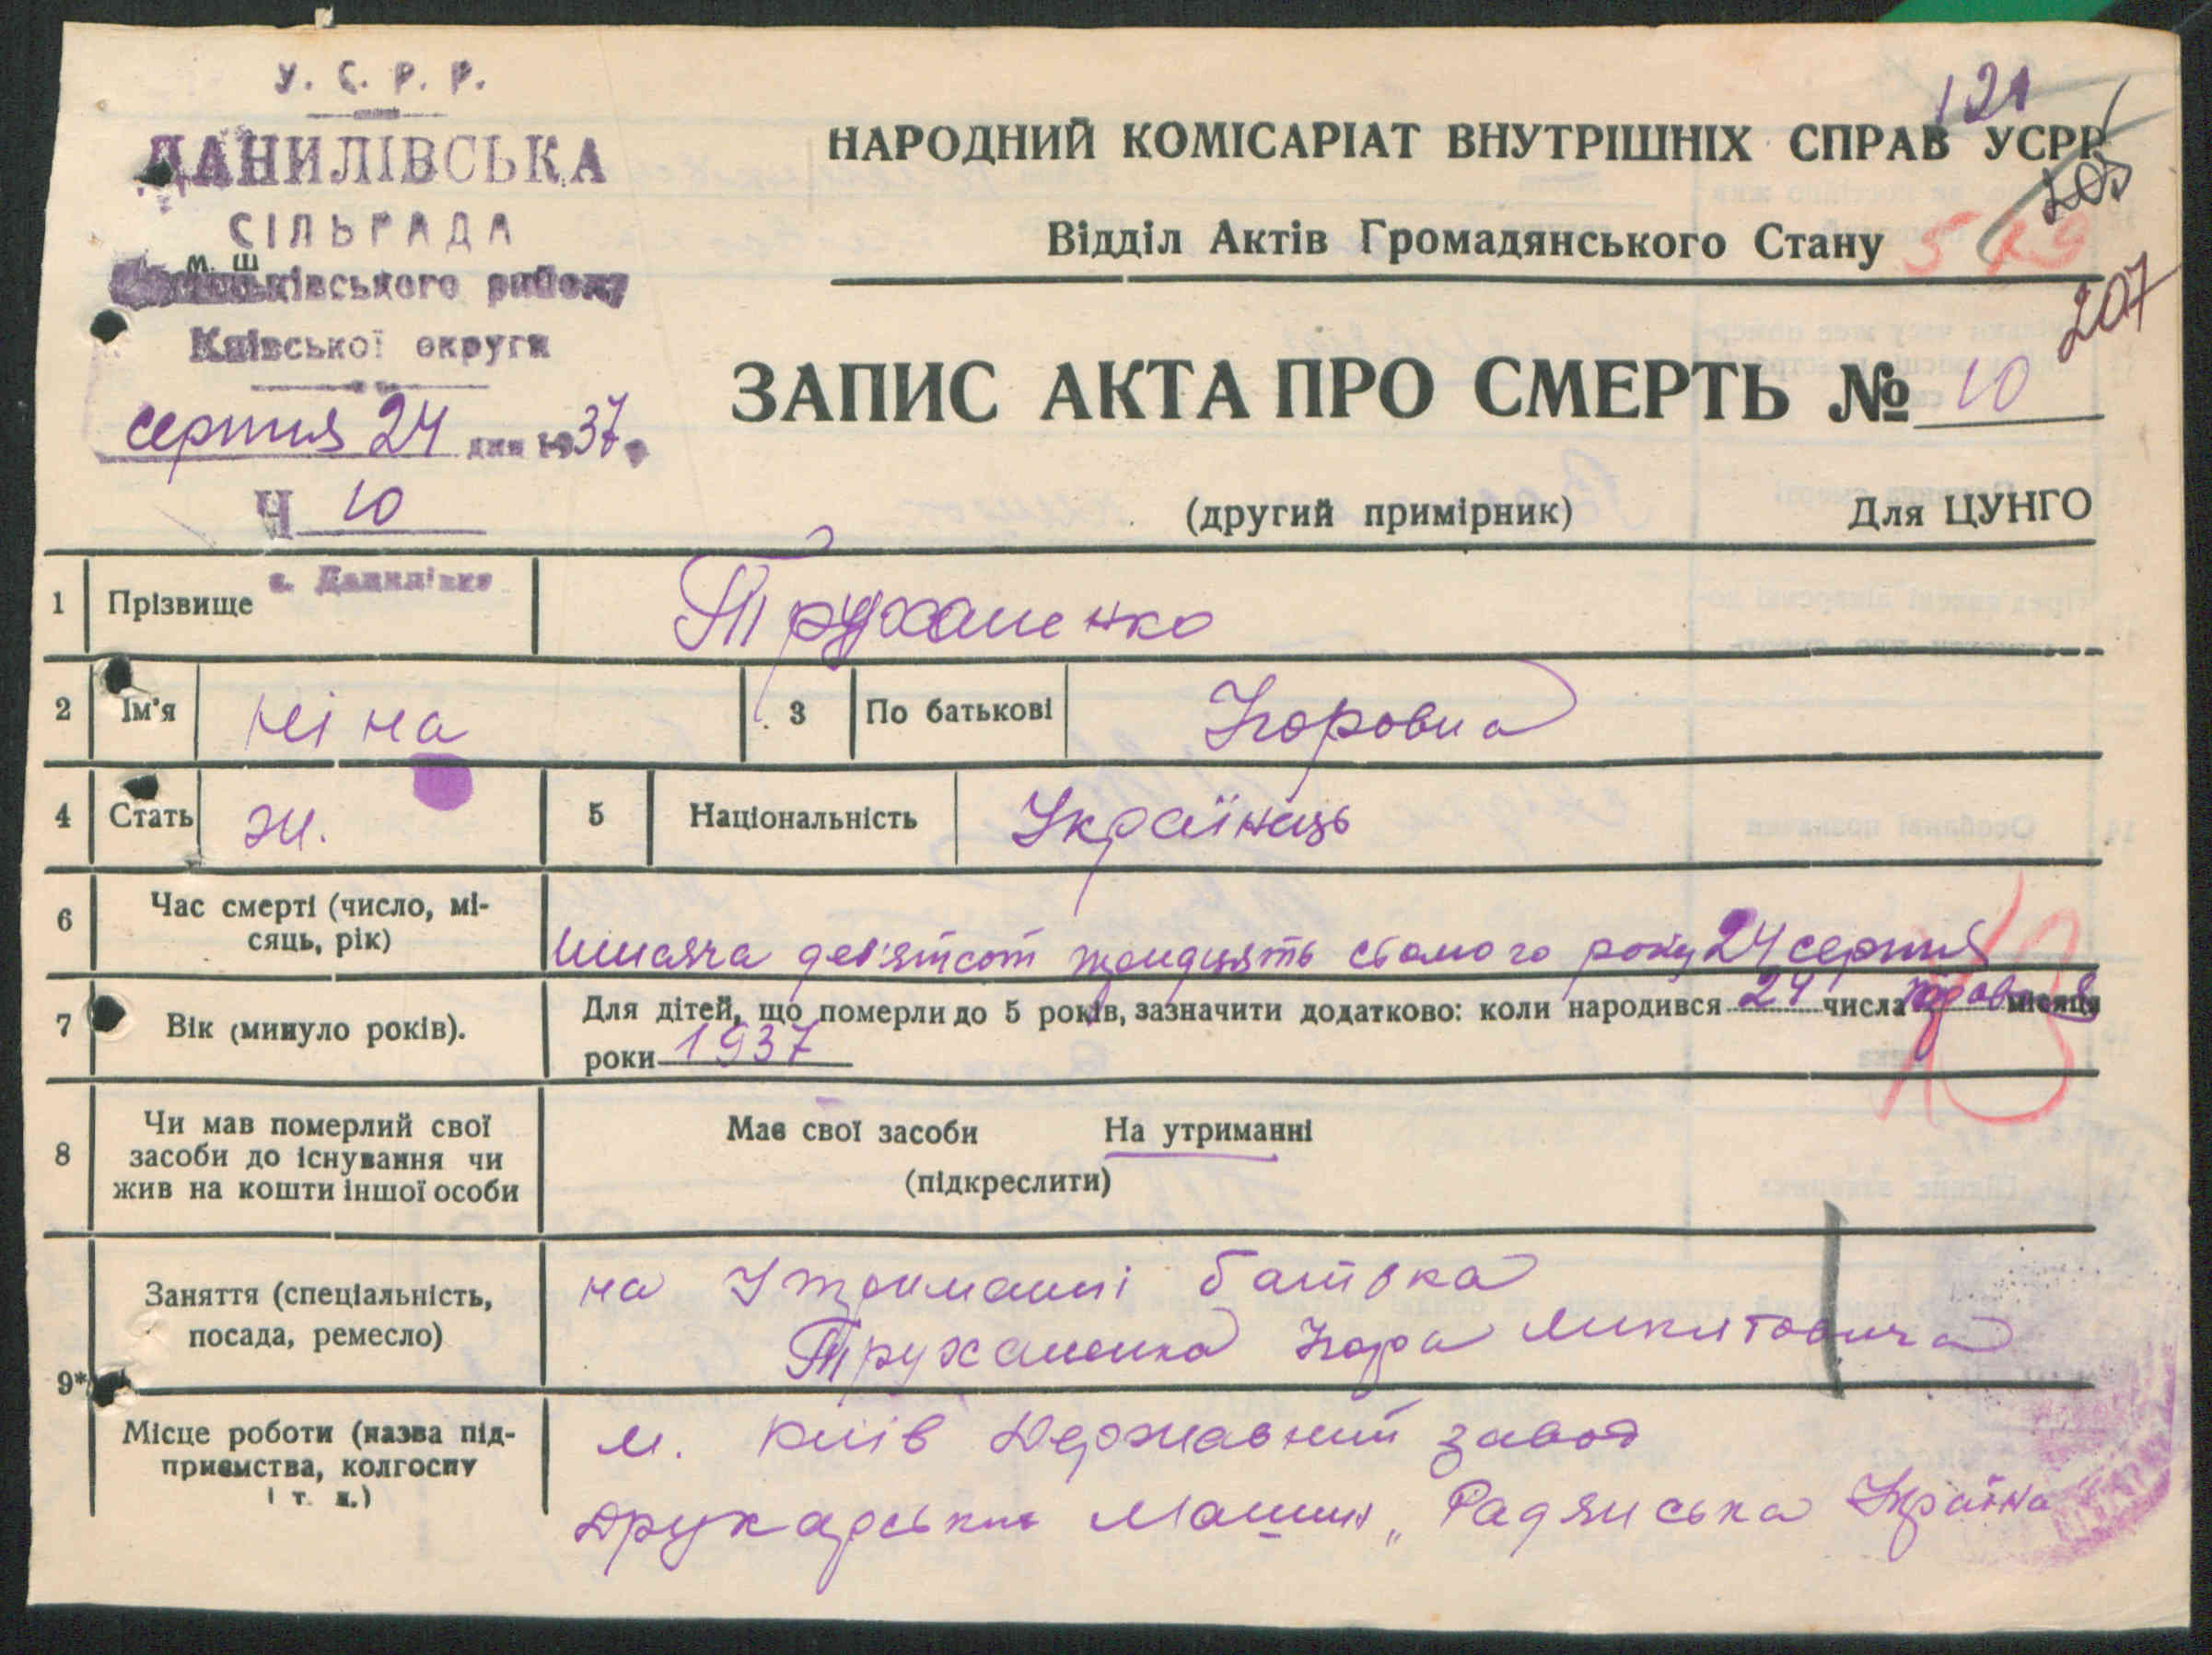 У. С. Р. Р.
ДАНИЛІВСЬКА
СІЛЬРАДА
м. ш
ківського району
Київської округи
серпня 24 дня 1937 р
Ч 10
с. Данилівка
121
НАРОДНИЙ КОМІСАРІАТ ВНУТРІШНІХ СПРАВ УСРР
Відділ Актів Громадянського Стану
207
ЗАПИС АКТА ПРО СМЕРТЬ № 10
(другий примірник) Для ЦУНГО
1 Прізвище Труханенко
2 Ім'я Ніна 3 По батькові Ігоровна
4 Стать Ж. 5 Національність Українець
6 Час смерті (число, мі-
сяць, рік)
тисяча дев'ятсот тридцять сьомого року 24 серпня
7 Вік (минуло років). Для дітей, що померли до 5 років, зазначити додатково: коли народився 24 числа травня місяця
роки 1937
8 Чи мав померлий свої
засоби до існування чи
жив на кошти іншої особи
Має свої засоби На утриманні
(підкреслити)
9*
Заняття (спеціальність,
посада, ремесло)
на Утриманні батька
Труханенка Ігора Микитовича
Місце роботи (назва під-
приємства, колгоспу
і т. п.)
м. Київ Державний завод
Друкарських Машин „Радянська Україна